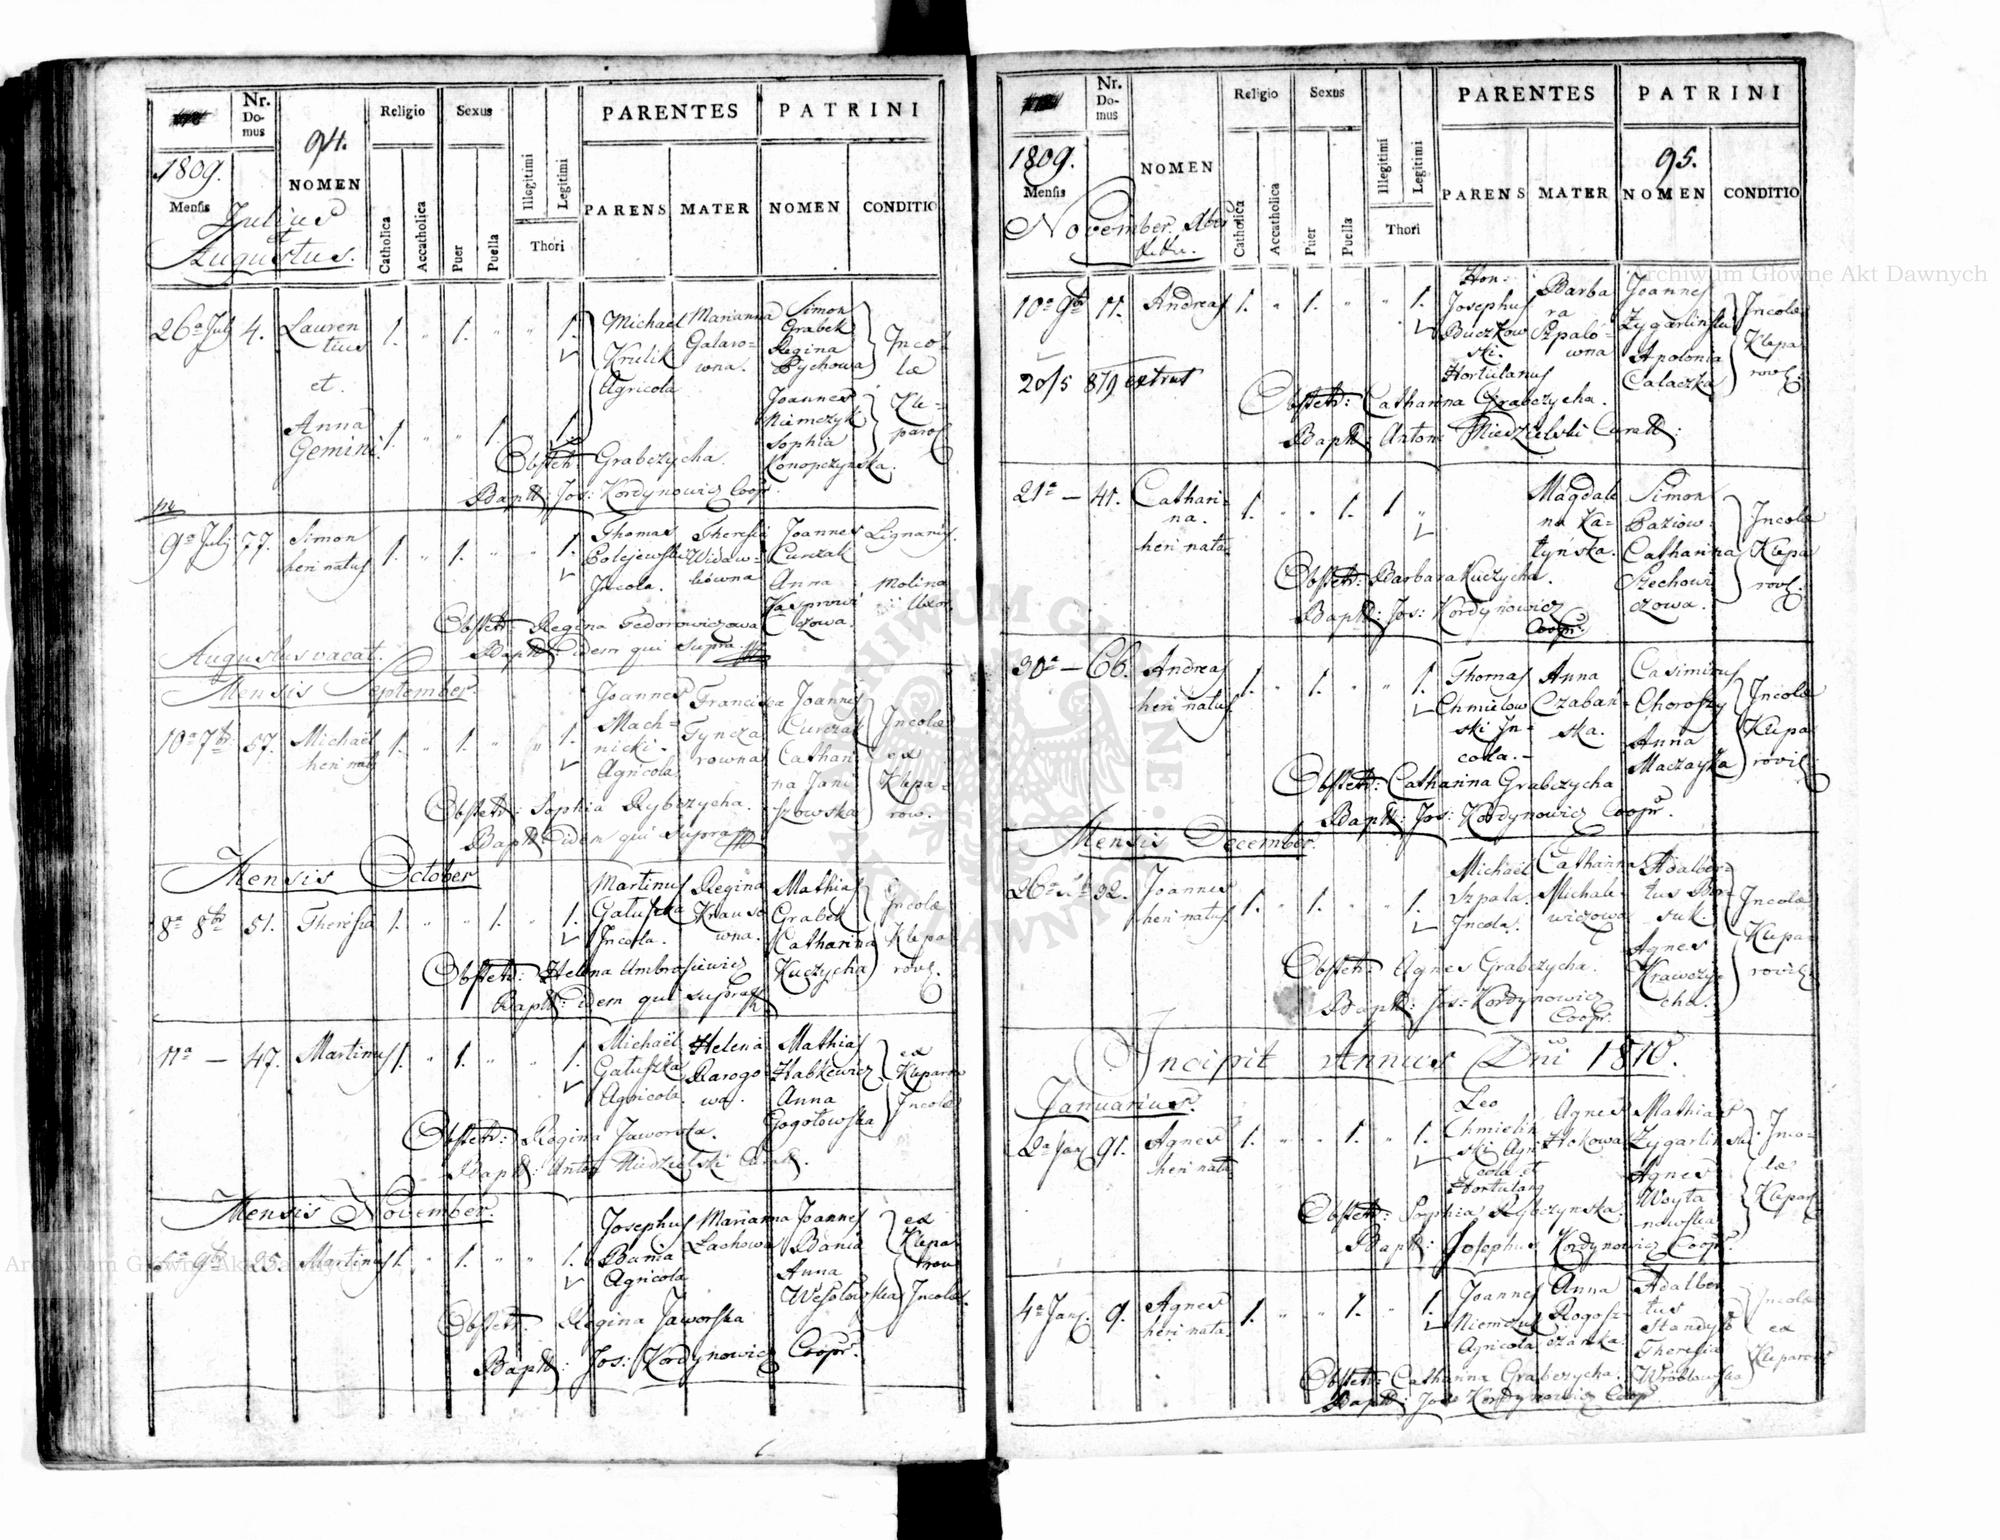 Nr. Domus
94.
NOMEN
Religio
Sexus
Catholica
Accatholica
Puer
Puella
Illegitimi
Legitimi
Thori
PARENTES
PATRINI
PARENS
MATER
NOMEN
CONDITIO
1809.
Mensis
Julius
et
Augustus.
26a July 4. Lauren
tius
et.
Anna
Gemini.
1. " 1. " " 1.
1. " " 1. 1.
Michaël
Krulik
Agricola
Marianna
Galaro-
wna.
Simon
Grabek
Regina
Pychowa
Joannes
Niemczyk
Sophia
Konopczynska.
Inco-
læ
Kle-
parov
Obstetr: Grabczycha.
Bapt: Jos: Kordynowicz Coopr.
9a July 77. Simon
heri natus
1. " 1. " " 1.
Thomas
Polejewski
Incola.
Theresia
Joannes
Curzak
Anna
Kasprowi
czowa.
Lignarius.
Molina
Uxor.
Obstetr: Regina Fedorowiczowa
Bapt: idem qui supra
Augustus vacat.
Mensis September.
10a 7br 57. Michaël
heri natus
1. " 1. " " 1.
Joannes
Mach-
nicki.
Agricola.
Francisca
Tyncza
rowna
Joannes
Curczak
Cathari
na Jani
szowska
Incolæ
ex
Klepa-
row.
Obstetr: Sophia Rybczycha.
Bapt: idem qui supra
Mensis October
8a 8br 51. Theresia 1. " " 1. " 1.
Martinus
Gatuszka
Incola.
Regina
Krauso
wna.
Mathias
Grabek
Catharina
Kuczycha
Incolæ
Klepa-
rovi.
Obstetr: Helena Ambrosiewicz
Bapt: idem qui supra
11a — 47. Martinus 1. " 1. " " 1.
Michaël
Gatuszka
Agricola.
Helena
Barogo-
wa.
Mathias
Habkewicz
Anna
Gogotowska
ex
Kleparow
Incolæ
Obstetr: Regina Jaworska.
Bapt: Anton Niedzielski Curat.
Mensis November.
6a 9br 25. Martinus 1. " 1. " " 1.
Josephus
Bania
Agricola
Marianna
Lachowa
Joannes
Bania
Anna
Wesolowska
ex
Klepa-
row
Incolæ.
Obstetr: Regina Jaworska
Bapt: Jos: Kordynowicz Coopr.
Nr. Domus
NOMEN
Religio
Sexus
Catholica
Accatholica
Puer
Puella
Illegitimi
Legitimi
Thori
PARENTES
PATRINI
95.
PARENS
MATER
NOMEN
CONDITIO
1809.
Mensis
November.
10a 9br 11. Andreas 1. " 1. " " 1.
20/5 879 extrat
Hon:
Josephus
Buczkow
ski.
Hortulanus
Barba
ra
Szpaló-
wna
Joannes
Zygarlinski
Apolonia
Calaczka
Incolæ
Klepa
rovi.
Obstetr: Catharina Grabczycha.
Bapt: Anton Niedzielski Curat:
21a — 41. Cathari-
na.
heri nata
1. " " 1. 1 "
Magdale
na Za-
tynska.
Simon
Baziow:
Catharina
Szechowi
czowa.
Incolæ
Klepa
rovi.
Obstetr: Barbara Kuczycha.
Bapt: Jos: Kordynowicz
Coopr.
30a — 66. Andreas
heri natus
1. " 1. " " 1.
Thomas
Chmielow
ski In-
cola.
Anna
Czaban-
ska.
Casimirus
Choroszy
Anna
Maczayka
Incolæ
Klepa
rovi.
Obstetr: Catharina Grabczycha
Bapt: Jos: Kordynowicz Coopr.
Mensis December.
26a 32. Joannes
heri natus
1. " 1. " " 1.
Michaël
Szpala.
Incola.
Catharina
Michale-
wiczowa
Adalber-
tus
Agnes
Krawczy-
cha.
Incolæ
Klepa-
rovi.
Obstetr: Agnes Grabczycha.
Bapt: Jos: Kordynowicz
Coopr.
Incipit Annus Dni 1810.
Januarius.
2a Jan 91. Agnes
heri nata
1. " " 1. " 1.
Leo
Chmielin
ski Agri
cola et
Hortulanus
Agnes
Hokowa
Mathias
Zygarlinski
Agnes
Woyta
nowska
Inco-
læ
Klepar
Obstetr: Sophia Rybczynska.
Bapt: Josephus Kordynowicz Coopr.
4a Jan. 9. Agnes
heri nata.
1. " " 1. " 1.
Joannes
Niemczuk
Agricola
Anna
Rogosz-
czanka.
Adalber
tus
Standyo
Theresia
Wróblowska
Incolæ
ex
Kleparow
Obstetr: Catharina Grabczycha.
Bapt: Jos: Kordynowicz Coopr.
Archiwum Główne Akt Dawnych
Archiwum Główne Akt Dawnych
ARCHIWUM GŁÓWNE AKT DAWNYCH